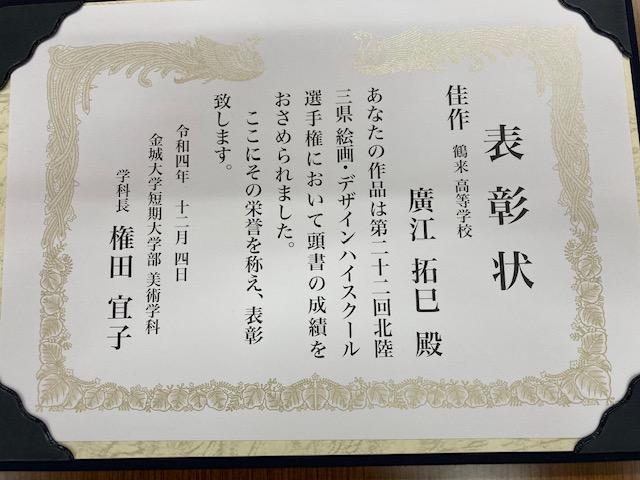 表彰状
佳作 鶴来 高等学校
廣江 拓巳 殿
あなたの作品は第二十二回北陸
三県 絵画・デザインハイスクール
選手権において頭書の成績を
おさめられました。
ここにその栄誉を称え、表彰
致します。
令和四年 十二月 四日
金城大学短期大学部 美術学科
学科長 権田 宜子